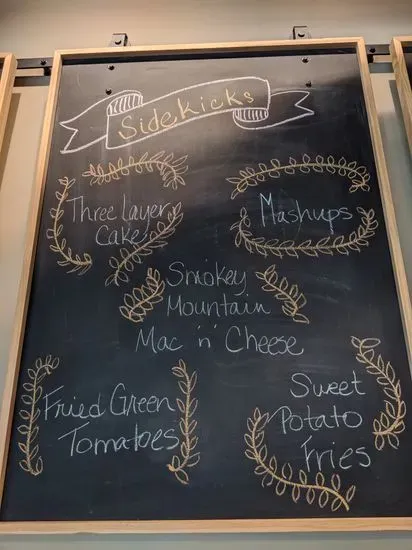 Sidekicks
Three Layer
Cake
Mashups
Smokey
Mountain
Mac 'n' Cheese
Fried Green
Tomatoes
Sweet
Potato
Fries